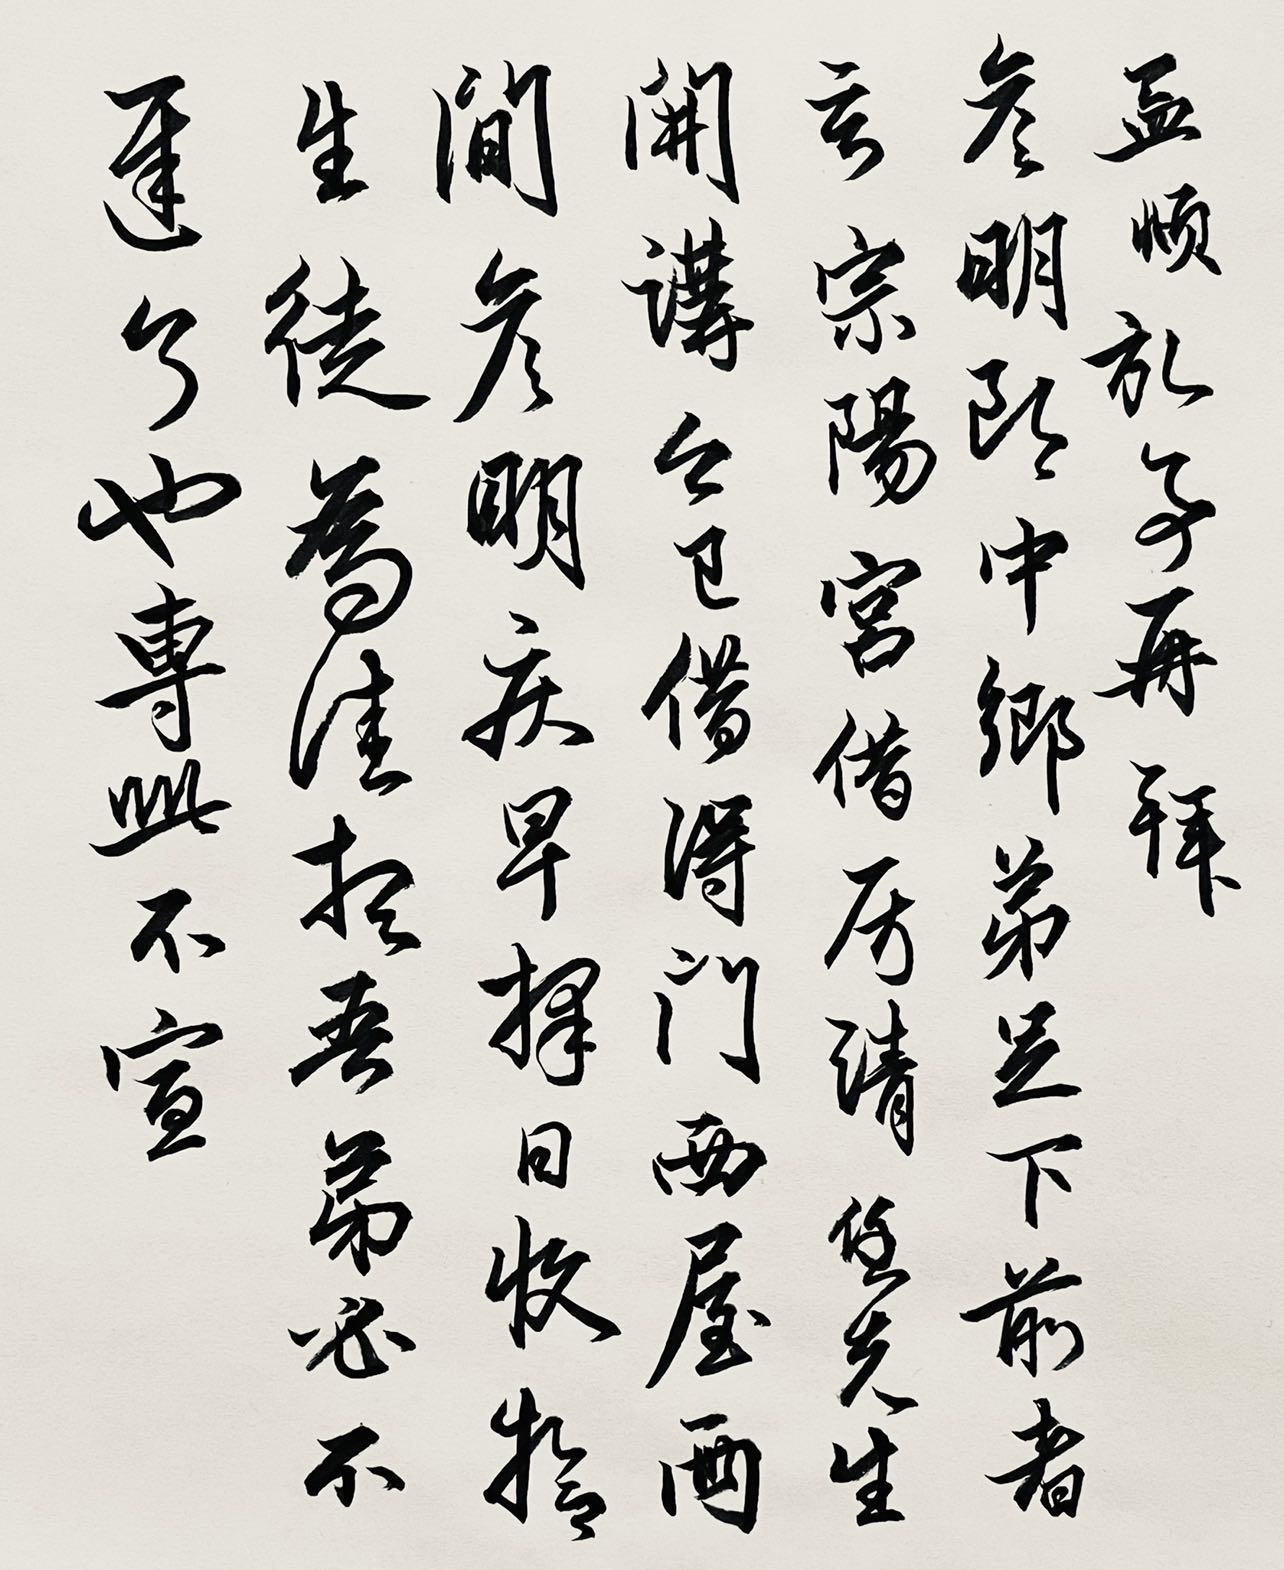 孟頫於手再拜
彥明郎中鄉弟足下前者
言宗陽宮借房請任先生
開講今已借得門西屋兩
間彥明疾早擇日收拾
生徒為佳想吾弟必不
遲了也專此不宣